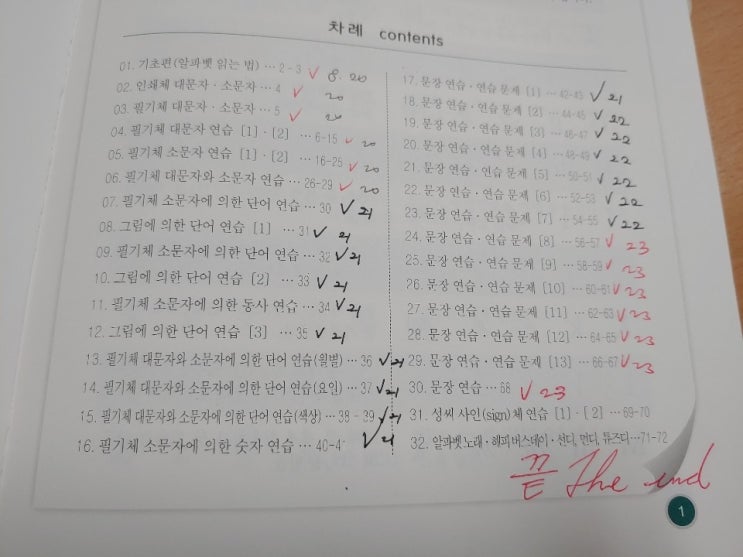 차례 contents
01. 기초편(알파벳 읽는 법) … 2-3 ✓ 8. 20
02. 인쇄체 대문자 · 소문자 … 4 ✓ 20
03. 필기체 대문자 · 소문자 … 5 ✓ 20
04. 필기체 대문자 연습 [1] · [2] … 6-15 ✓ 20
05. 필기체 소문자 연습 [1] · [2] … 16-25 ✓ 20
06. 필기체 대문자와 소문자 연습 … 26-29 ✓ 20
07. 필기체 소문자에 의한 단어 연습 … 30 ✓ 21
08. 그림에 의한 단어 연습 [1] … 31 ✓ 21
09. 필기체 소문자에 의한 단어 연습 … 32 ✓ 21
10. 그림에 의한 단어 연습 [2] … 33 ✓ 21
11. 필기체 소문자에 의한 동사 연습 … 34 ✓ 21
12. 그림에 의한 단어 연습 [3] … 35 ✓ 21
13. 필기체 대문자와 소문자에 의한 단어 연습(월별) … 36 ✓ 21
14. 필기체 대문자와 소문자에 의한 단어 연습(요일) … 37 ✓ 21
15. 필기체 대문자와 소문자에 의한 단어 연습(색상) … 38 - 39 ✓ 21
16. 필기체 소문자에 의한 숫자 연습 … 40-4 ✓ 21
17. 문장 연습 · 연습 문제 [1] … 42-43 ✓ 21
18. 문장 연습 · 연습 문제 [2] … 44-45 ✓ 22
19. 문장 연습 · 연습 문제 [3] … 46-47 ✓ 22
20. 문장 연습 · 연습 문제 [4] … 48-49 ✓ 22
21. 문장 연습 · 연습 문제 [5] … 50-51 ✓ 22
22. 문장 연습 · 연습 문제 [6] … 52-53 ✓ 22
23. 문장 연습 · 연습 문제 [7] … 54-55 ✓ 22
24. 문장 연습 · 연습 문제 [8] … 56-57 ✓ 23
25. 문장 연습 · 연습 문제 [9] … 58-59 ✓ 23
26. 문장 연습 · 연습 문제 [10] … 60-61 ✓ 23
27. 문장 연습 · 연습 문제 [11] … 62-63 ✓ 23
28. 문장 연습 · 연습 문제 [12] … 64-65 ✓ 23
29. 문장 연습 · 연습 문제 [13] … 66-67 ✓ 23
30. 문장 연습 … 68 ✓ 23
31. 성씨 사인(sign)체 연습 [1] · [2] … 69-70
32. 알파벳 노래 · 해피 버스데이 · 선디, 먼디, 튜즈디 … 71-72
끝 The end
1